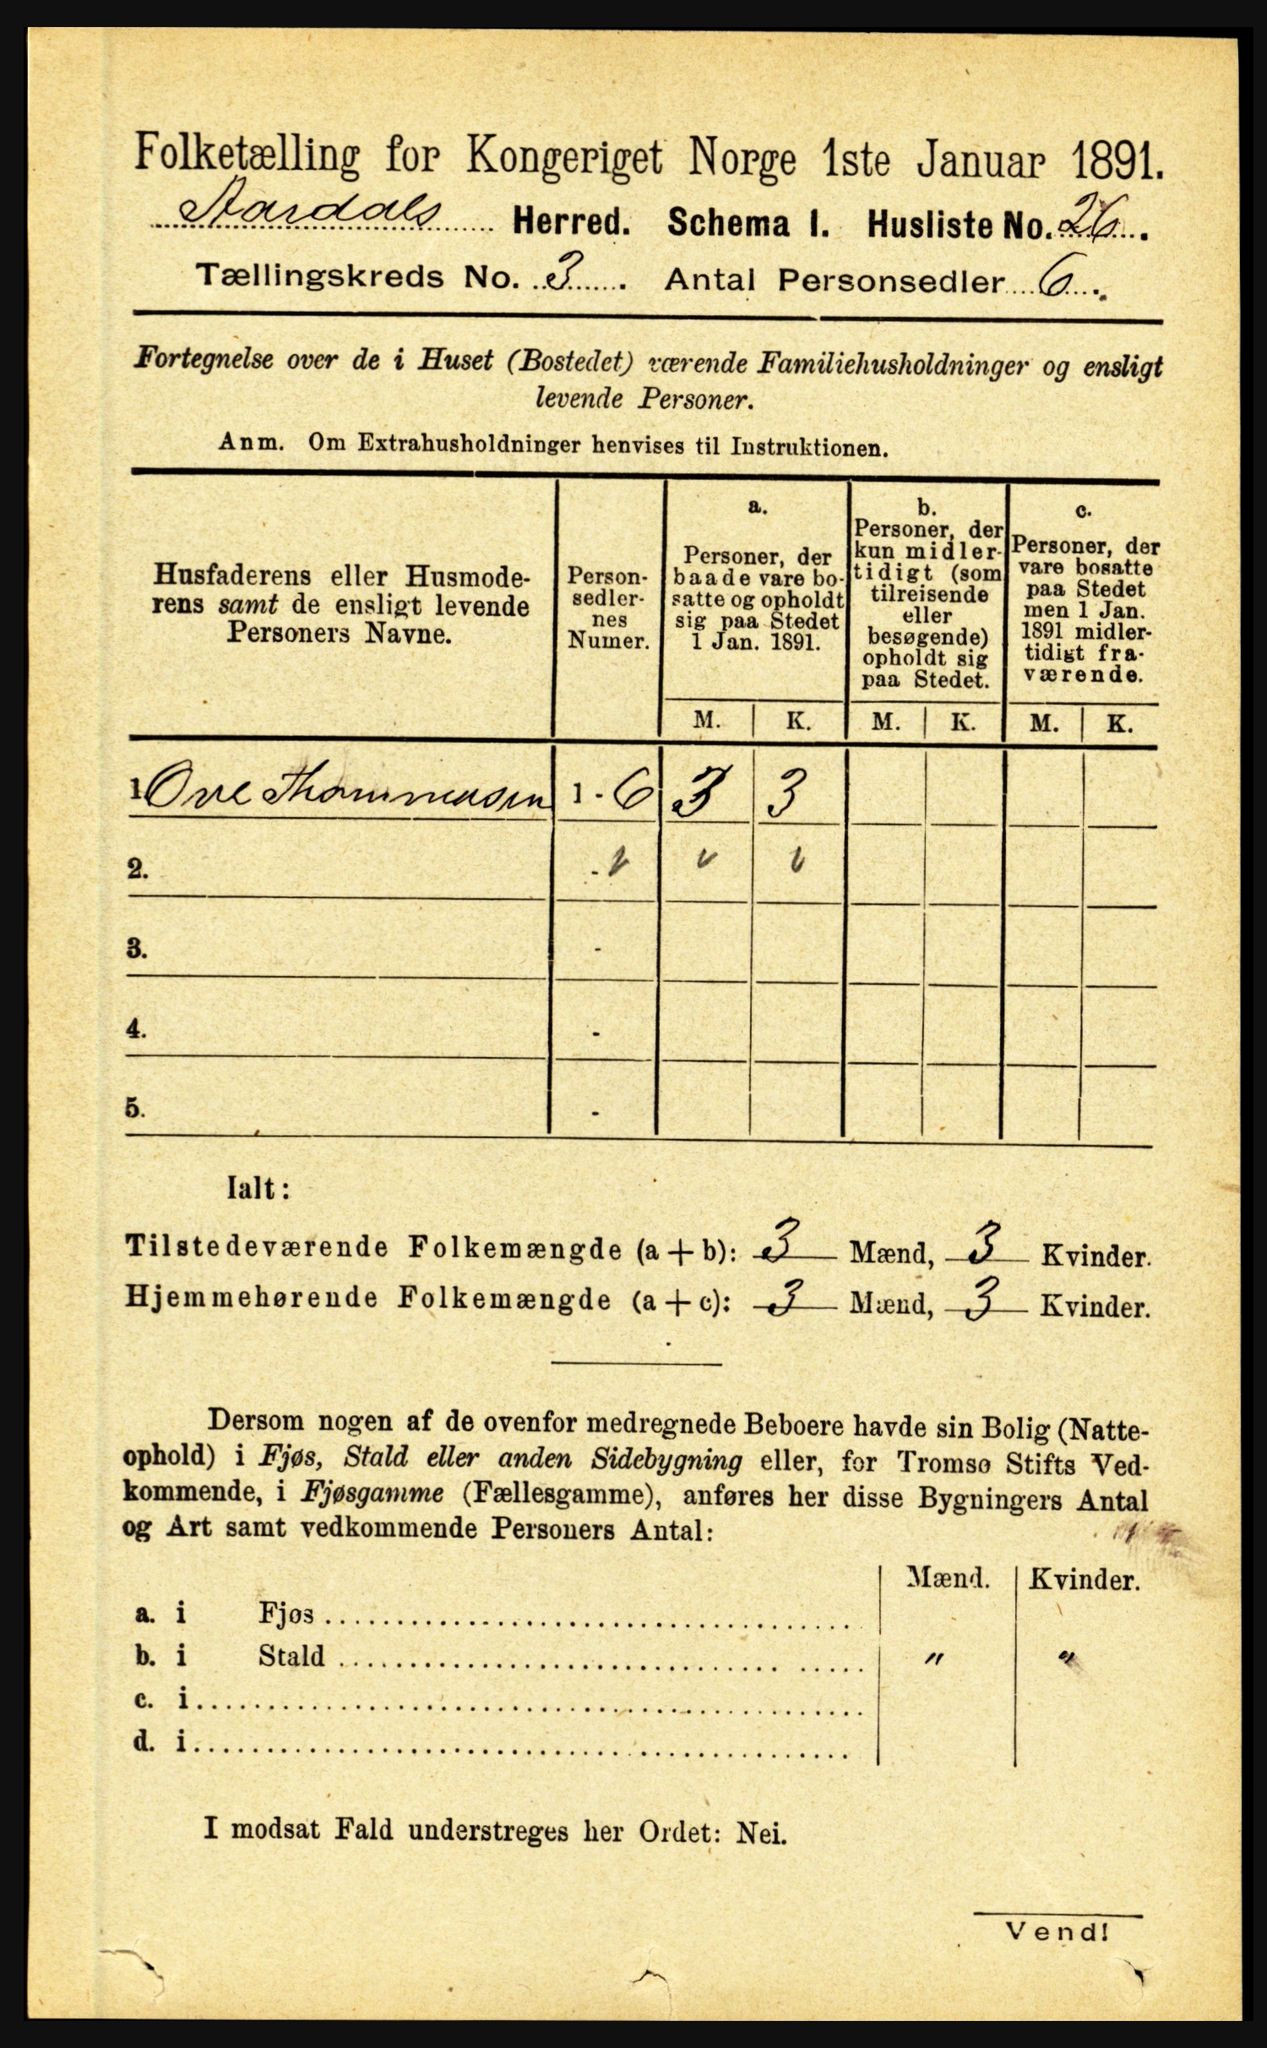 Folketælling for Kongeriget Norge 1ste Januar 1891.
Aardals Herred. Schema I. Husliste No. 26.
Tællingskreds No. 3. Antal Personsedler 6.
Fortegnelse over de i Huset (Bostedet) værende Familiehusholdninger og ensligt
levende Personer.
Anm. Om Extrahusholdninger henvises til Instruktionen.
Husfaderens eller Husmode-
rens samt de ensligt levende
Personers Navne.
Person-
sedler-
nes
Numer.
a.
Personer, der
baade vare bo-
satte og opholdt
sig paa Stedet
1 Jan. 1891.
b.
Personer, der
kun midler-
tidigt (som
tilreisende
eller
besøgende)
opholdt sig
paa Stedet.
c.
Personer, der
vare bosatte
paa Stedet
men 1 Jan.
1891 midler-
tidigt fra-
værende.
M. K. M. K. M. K.
1 Ove Thommesen 1 - 6 3 3
2. -
3. -
4. -
5. -
Ialt:
Tilstedeværende Folkemængde (a + b): 3 Mænd, 3 Kvinder.
Hjemmehørende Folkemængde (a + c): 3 Mænd, 3 Kvinder.
Dersom nogen af de ovenfor medregnede Beboere havde sin Bolig (Natte-
ophold) i Fjøs, Stald eller anden Sidebygning eller, for Tromsø Stifts Ved-
kommende, i Fjøsgamme (Fællesgamme), anføres her disse Bygningers Antal
og Art samt vedkommende Personers Antal:
Mænd. Kvinder.
a. i Fjøs
b. i Stald " "
c. i
d. i
I modsat Fald understreges her Ordet: Nei.
Vend!